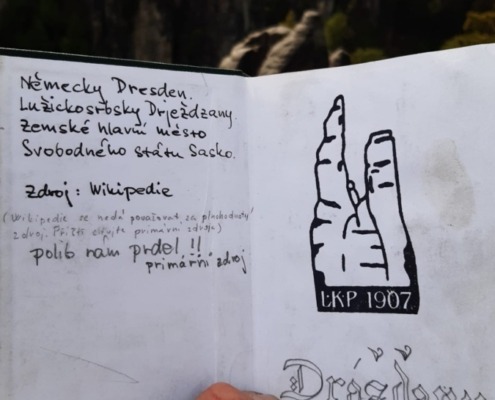 Německy Dresden.
Lužickosrbsky Drježdźany.
Zemské hlavní město
Svobodného státu Sasko.
Zdroj: Wikipedie
(Wikipedie se nedá považovat za plnohodnotný
zdroj. Příště citujte primární zdroje)
polib nam prdel !!
primářní zdroj
ŁKP 1907
Drážďany